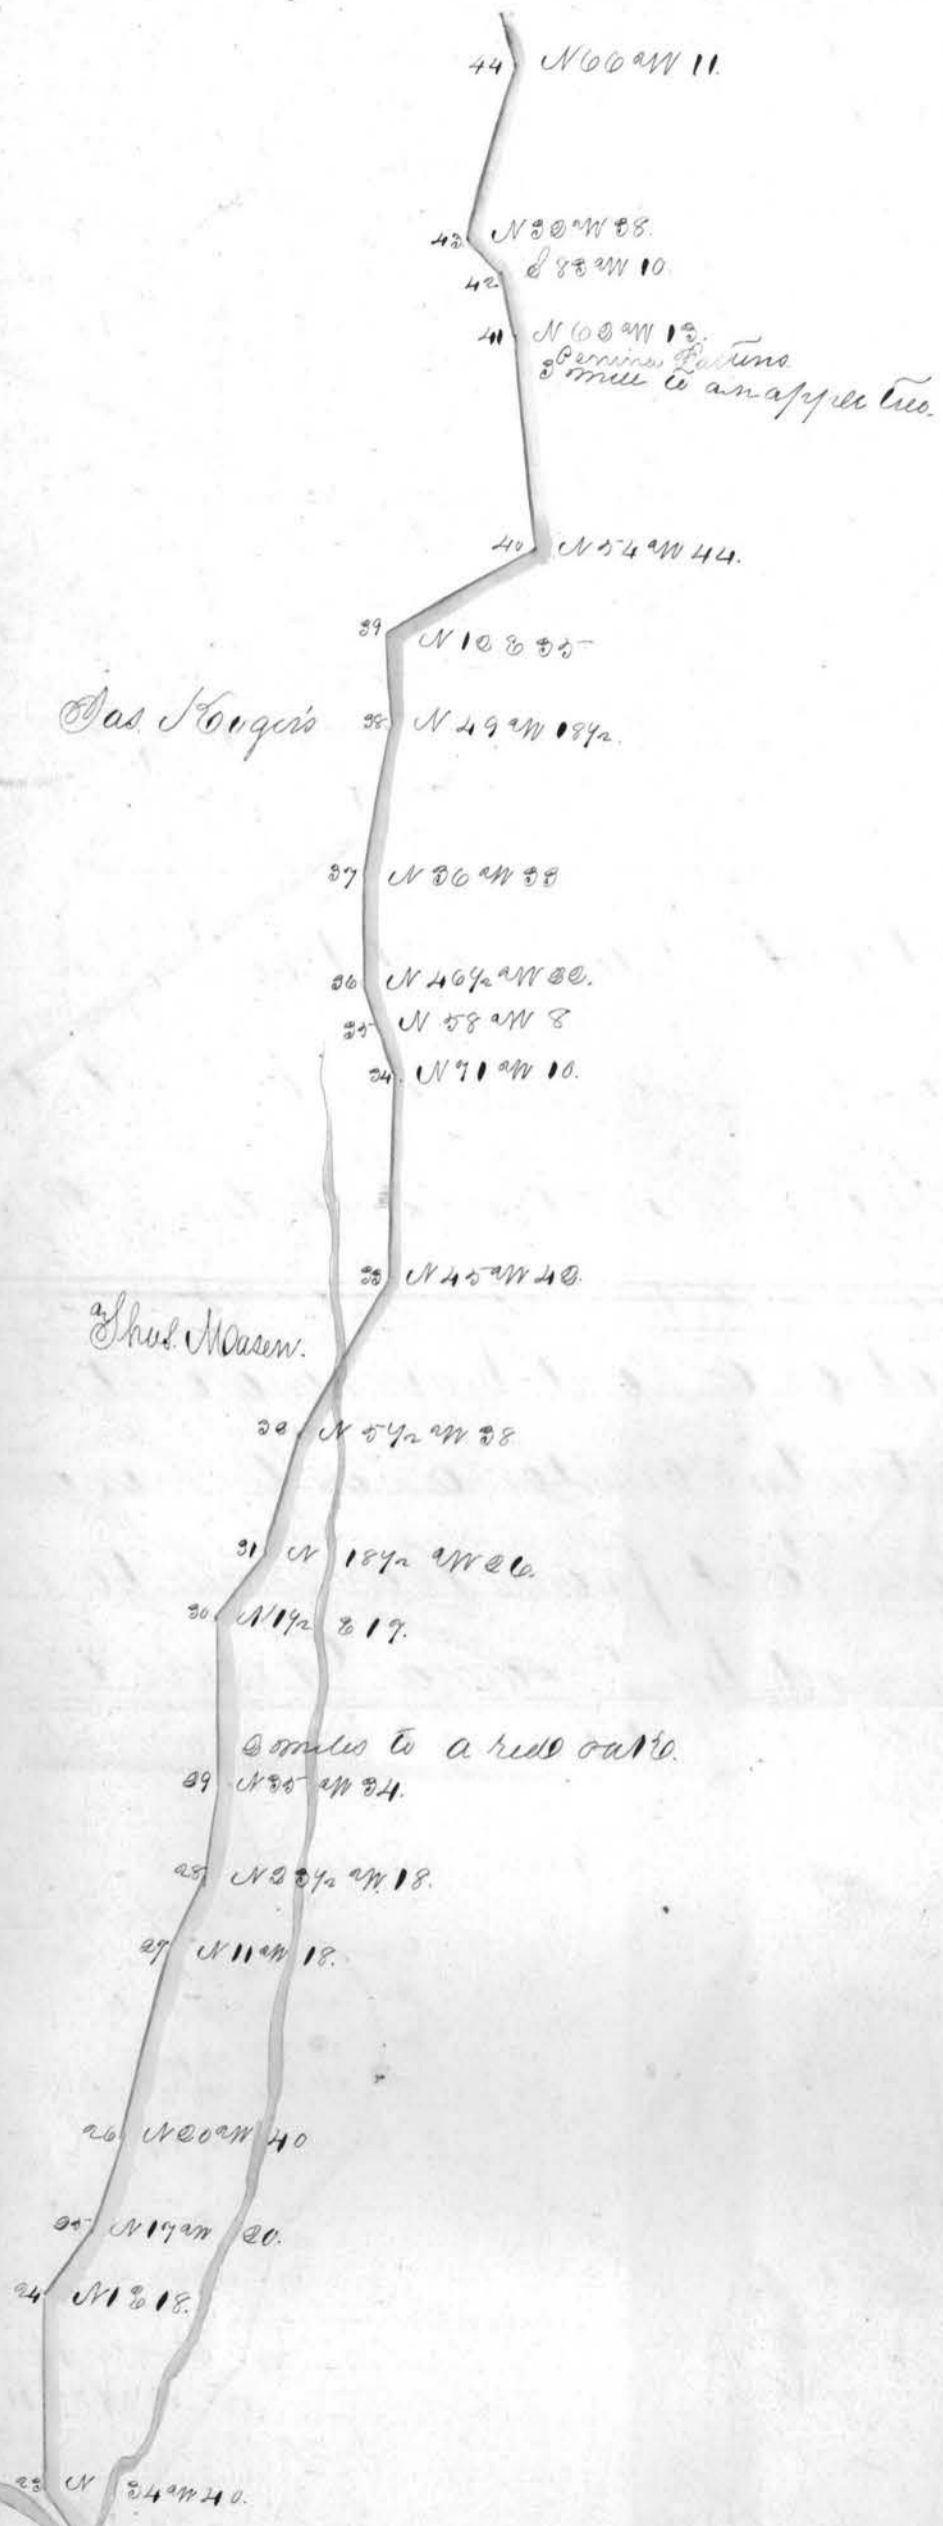 44 N 66 W 11.
43. N 32 W 38.
42 S 83 W 10
41 N 62 W 13.
3 mile to an apple tree.
40 N 54 W 44.
39 N 12 E 35
38 N 49 W 18 1/2.
Jas.
37 N 36 W 33
36 N 46 1/2 W 32.
35 N 58 W 8
34 N 71 W 10.
33 N 45 W 42.
Thos. Masen.
32 N 5 1/2 W 38
31 N 18 1/2 W 26.
30 N 1 1/2 E 17.
2 miles to a red oak.
29 N 35 W 34.
28 N 23 1/2 W. 18.
27 N 11 W 18.
26 N 20 W 40
25 N 17 W 20.
24 N 1 E 18.
23 N 34 W 40.